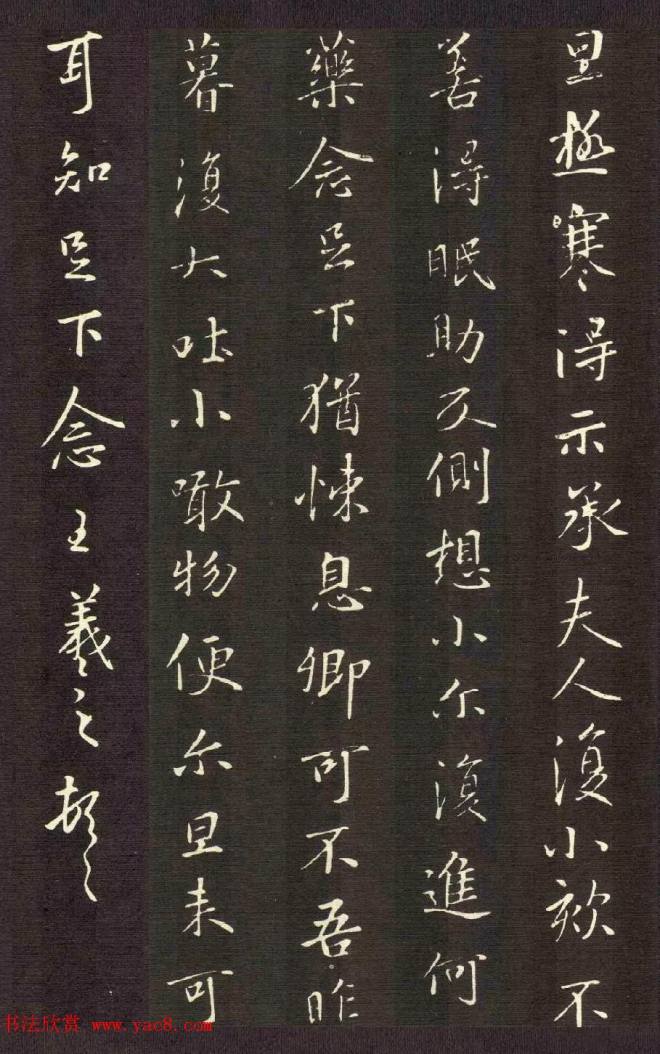 旦極寒得示承夫人復小欬不
善得眠助反側想小尒復進何
藥念足下猶悚息卿可不吾昨
暮復大吐小噉物便尒旦来可
耳知足下念王羲之頓
书法欣赏 www.yac8.com